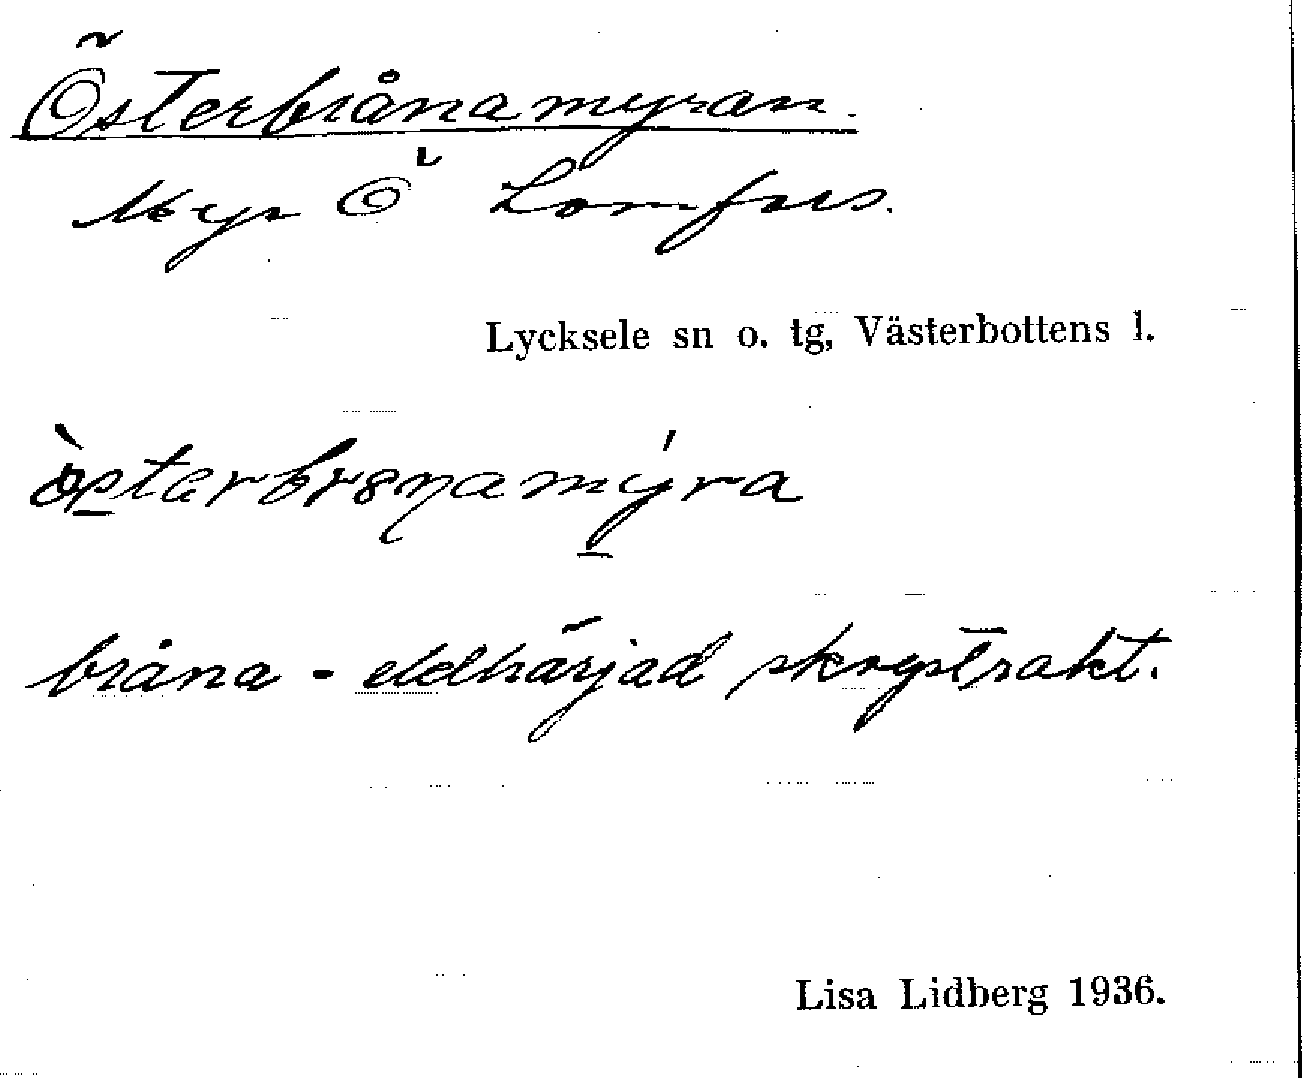 Österbrånamyran.
Myr Ö Lomfors.
Lycksele sn o. tg, Västerbottens l.
bråna - eldhärjad skogstrakt.
Lisa Lidberg 1936.